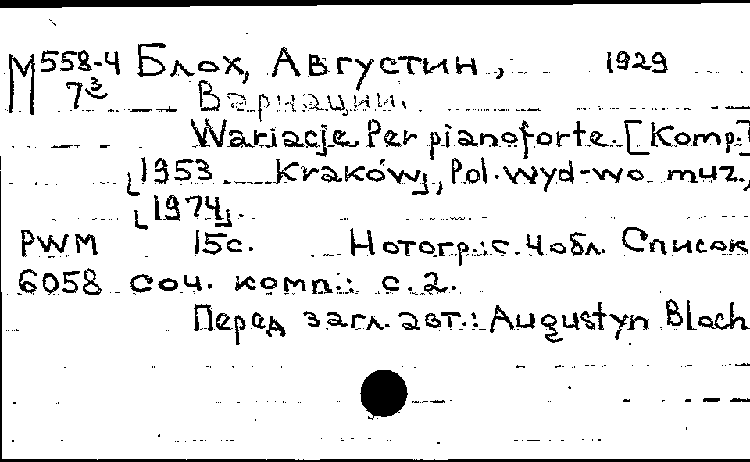 М 558-4 Блох, Августин, 1929
7³ Вариации.
Wariacje Per pianoforte. [Komp.]
[1953 Kraków], Pol. wyd-wo muz.,
[1974].
PWM 15с. Нотогр.: с. 4 обл. Список
6058 соч. комп.: с. 2.
Перед загл. авт.: Augustyn Bloch